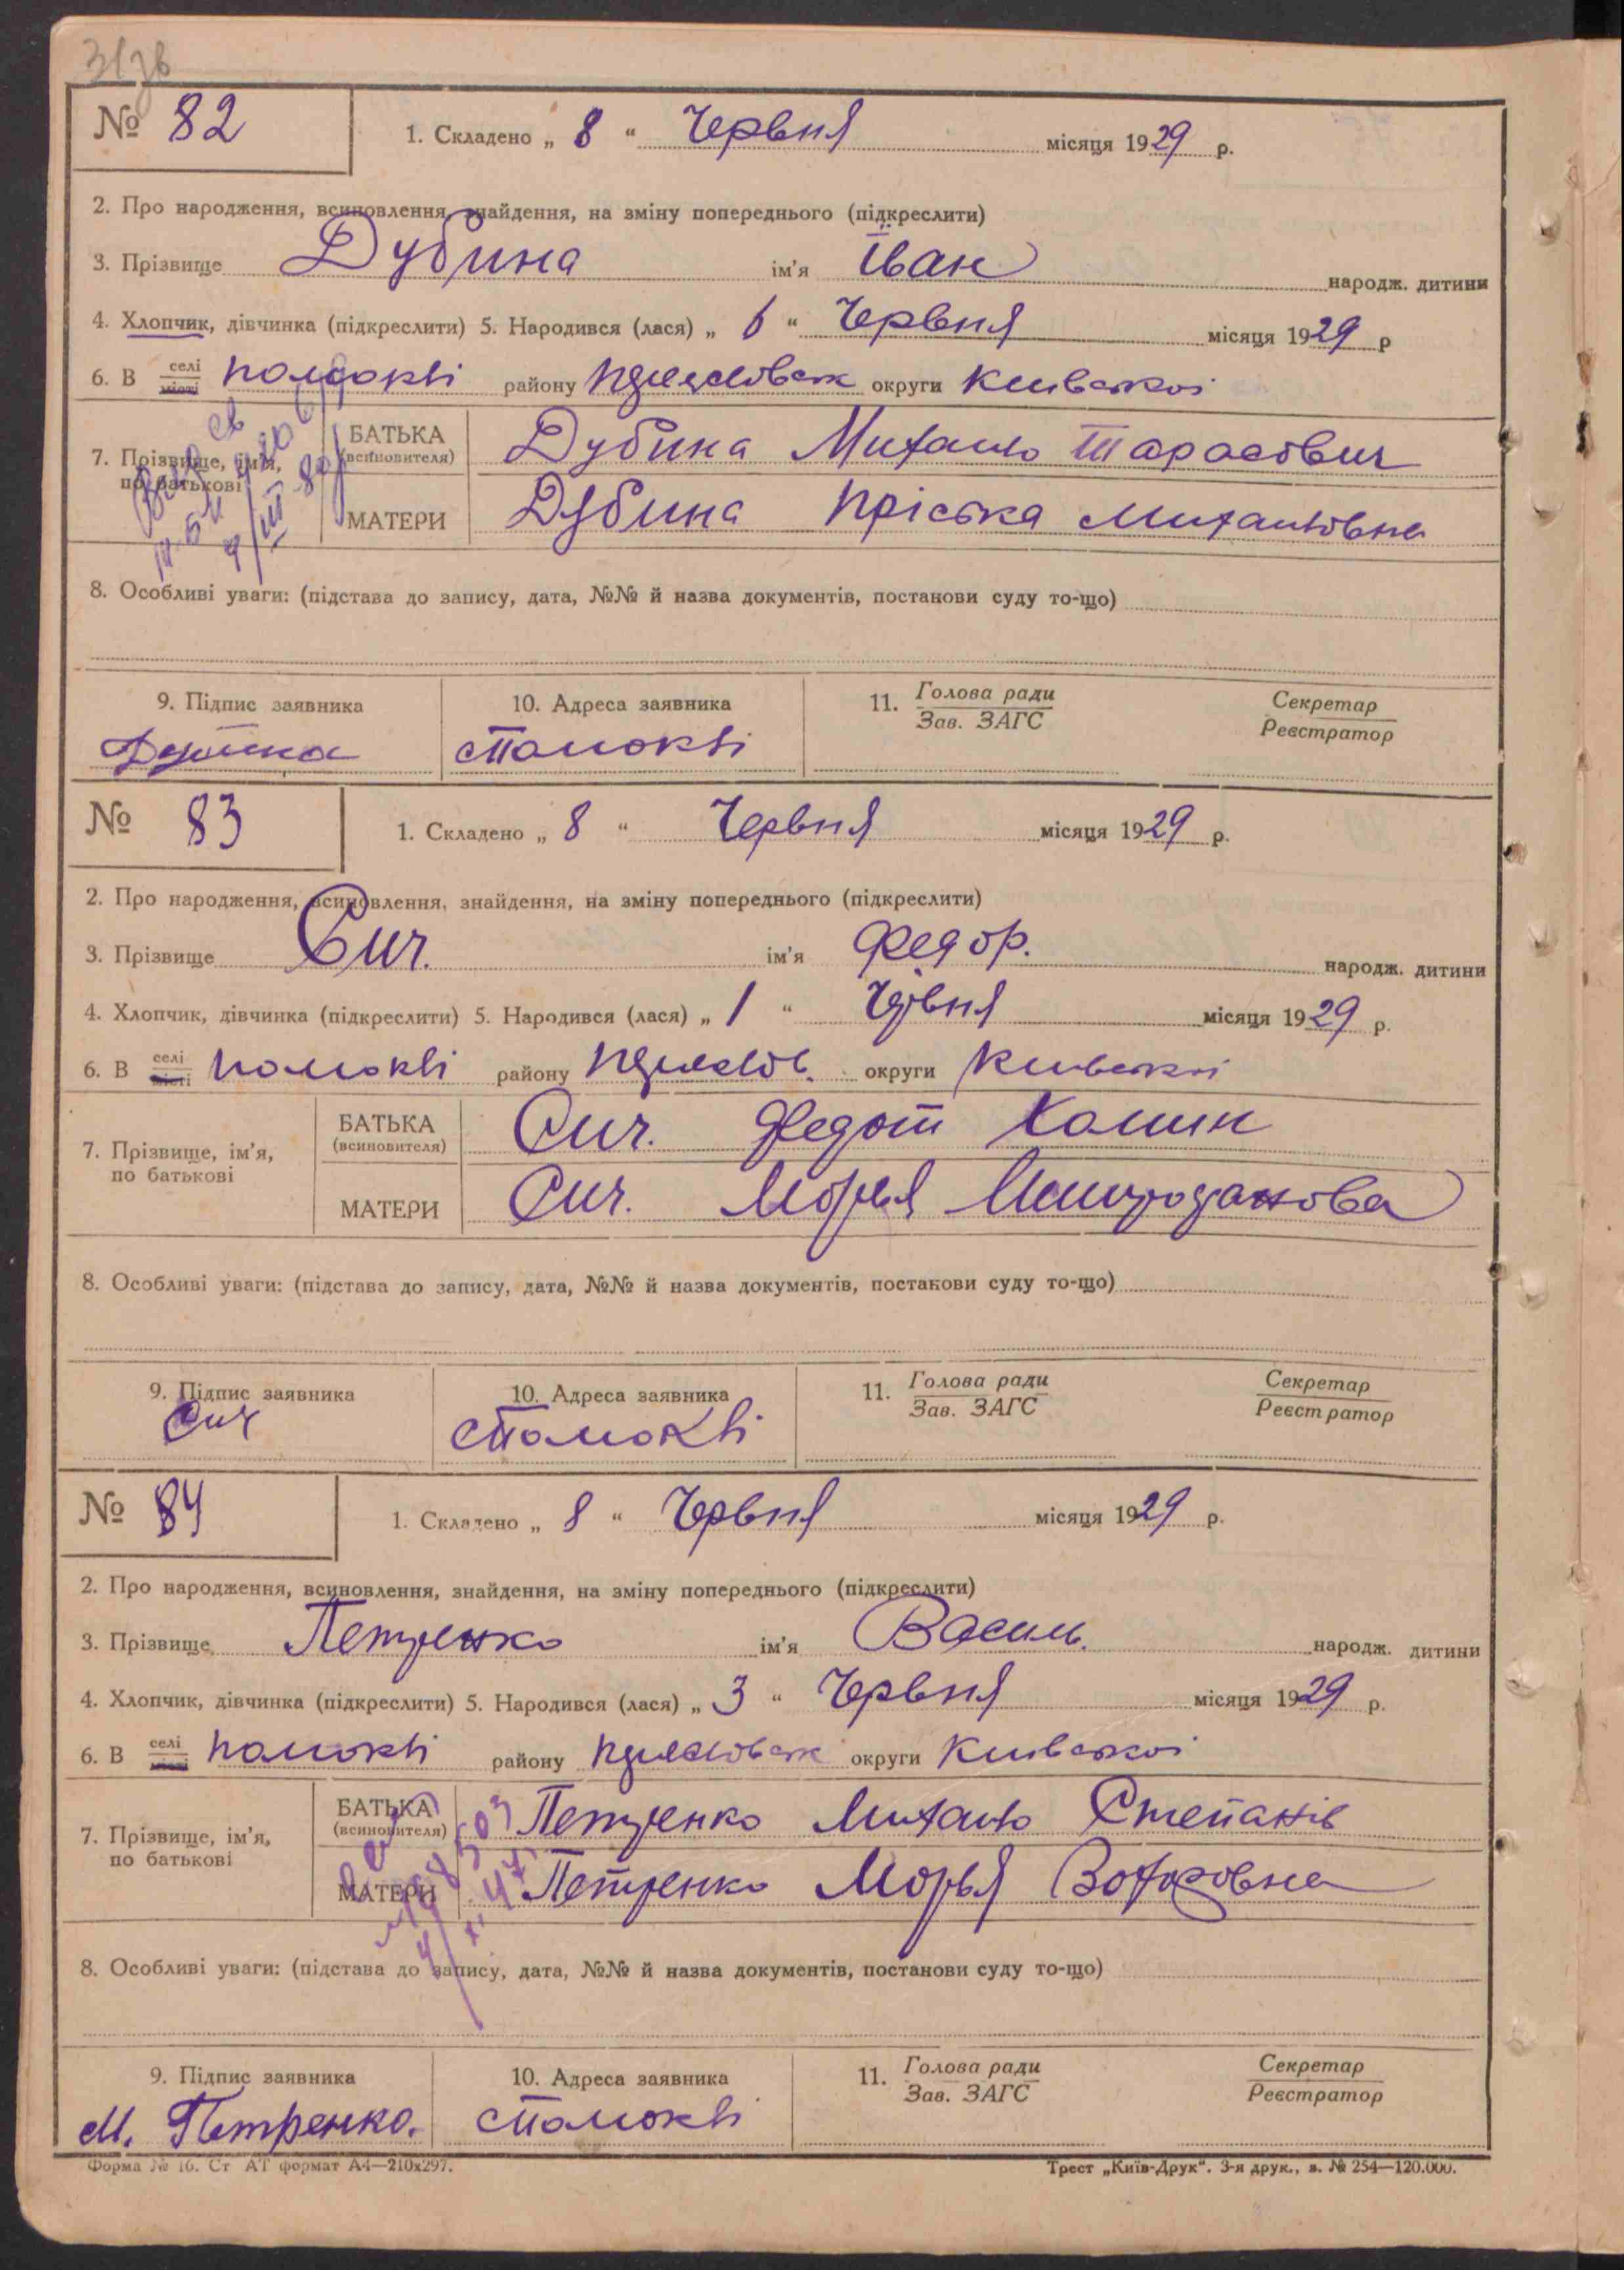 № 82
1. Складено „ 8 “ Червня місяця 1929 р.
2. Про народження, всиновлення, знайдення, на зміну попереднього (підкреслити)
3. Прізвище Дубина ім'я Іван народж. дитини
4. Хлопчик, дівчинка (підкреслити) 5. Народився (лася) „ 6 “ Червня місяця 1929 р
6. В селі місті району округи Київської
7. Прізвище, ім'я, по батькові
БАТЬКА (всиновителя) Дубина Михайло Тарасович
МАТЕРИ Дубина Пріська Михайловна
8. Особливі уваги: (підстава до запису, дата, №№ й назва документів, постанови суду то-що)
9. Підпис заявника 10. Адреса заявника 11. Голова ради Зав. ЗАГС Секретар Реєстратор
Дубина
№ 83
1. Складено „ 8 “ Червня місяця 1929 р.
2. Про народження, всиновлення, знайдення, на зміну попереднього (підкреслити)
3. Прізвище Сич. ім'я Федор. народж. дитини
4. Хлопчик, дівчинка (підкреслити) 5. Народився (лася) „ 1 “ місяця 1929 р.
6. В селі місті району округи Київської
7. Прізвище, ім'я, по батькові
БАТЬКА (всиновителя) Сич. Федот
МАТЕРИ Сич. Марья
8. Особливі уваги: (підстава до запису, дата, №№ й назва документів, постанови суду то-що)
9. Підпис заявника 10. Адреса заявника 11. Голова ради Зав. ЗАГС Секретар Реєстратор
Сич
№ 84
1. Складено „ 8 “ Червня місяця 1929 р.
2. Про народження, всиновлення, знайдення, на зміну попереднього (підкреслити)
3. Прізвище Петренко ім'я Василь. народж. дитини
4. Хлопчик, дівчинка (підкреслити) 5. Народився (лася) „ 3 “ Червня місяця 1929 р.
6. В селі місті району округи Київської
7. Прізвище, ім'я, по батькові
БАТЬКА (всиновителя) Петренко Михайло Степанів
МАТЕРИ Петренко Марья
8. Особливі уваги: (підстава до запису, дата, №№ й назва документів, постанови суду то-що)
9. Підпис заявника 10. Адреса заявника 11. Голова ради Зав. ЗАГС Секретар Реєстратор
М. Петренко.
Форма № 16. Ст АТ формат А4—210x297. Трест „Київ-Друк“. 3-я друк., з. № 254—120.000.